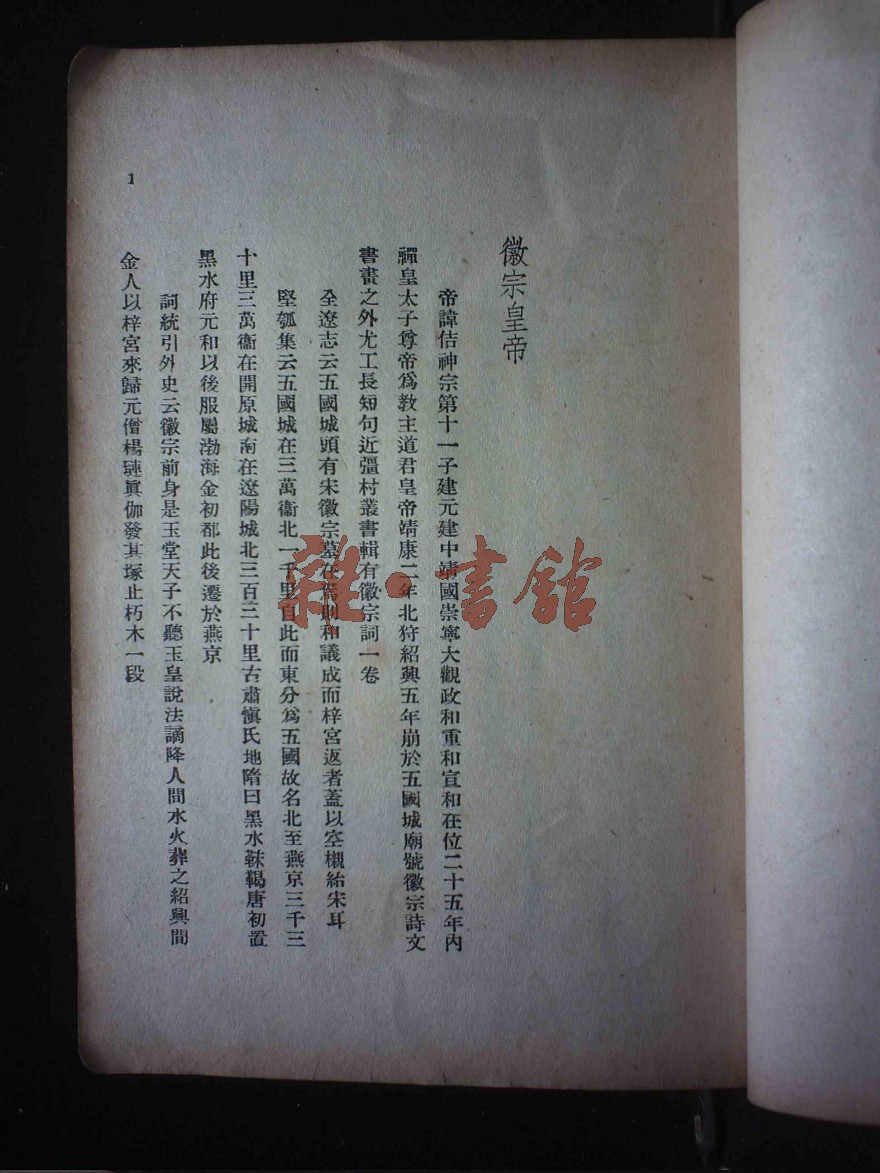 徽宗皇帝
帝諱佶神宗第十一子建元建中靖國崇寧大觀政和重和宣和在位二十五年內
禪皇太子尊帝爲教主道君皇帝靖康二年北狩紹興五年崩於五國城廟號徽宗詩文
書畫之外尤工長短句近彊村叢書輯有徽宗詞一卷
全遼志云五國城頭有宋徽宗墓在焉則和議成而梓宮返者蓋以空櫬紿宋耳
堅瓠集云五國城在三萬衞北一千里自此而東分爲五國故名北至燕京三千三
十里三萬衞在開原城南在遼陽城北三百三十里古肅愼氏地隋曰黑水靺鞨唐初置
黑水府元和以後服屬渤海金初都此後遷於燕京
詞統引外史云徽宗前身是玉堂天子不聽玉皇說法謫降人間水火葬之紹興間
金人以梓宮來歸元僧楊璉眞伽發其塚止朽木一段
1
雜·書館